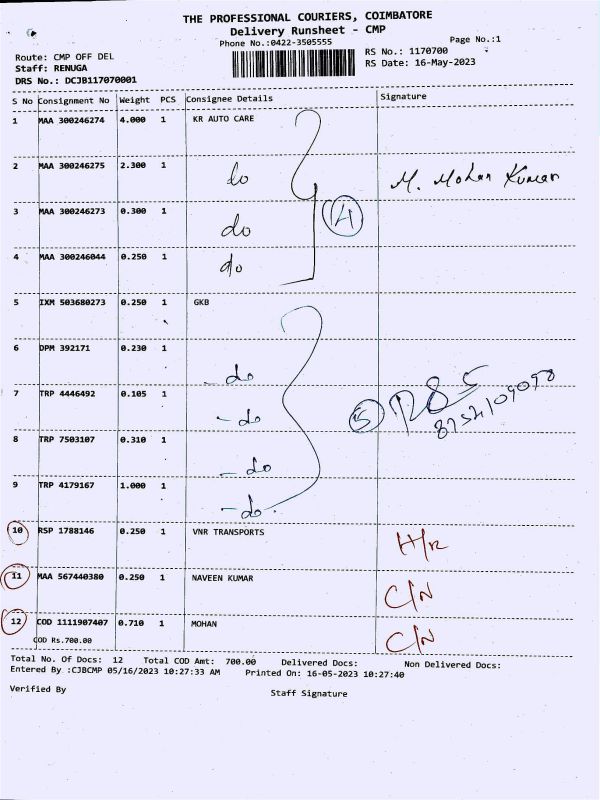 THE PROFESSIONAL COURIERS, COIMBATORE
Delivery Runsheet - CMP
Phone No.:0422-3505555
Page No.:1
Route: CMP OFF DEL
RS No.: 1170700
Staff: RENUGA
RS Date: 16-May-2023
DRS No.: DCJB117070001
S No Consignment No Weight PCS Consignee Details Signature
1 MAA 300246274 4.000 1 KR AUTO CARE
2 MAA 300246275 2.300 1 do M. Mohan Kumar
3 MAA 300246273 0.300 1 do 4
4 MAA 300246044 0.250 1 do
5 IXM 503680273 0.250 1 GKB
6 DPM 392171 0.230 1 - do
7 TRP 4446492 0.105 1 - do 5 8754109098
8 TRP 7503107 0.310 1 - do
9 TRP 4179167 1.000 1 - do.
10 RSP 1788146 0.250 1 VNR TRANSPORTS H/R
11 MAA 567440380 0.250 1 NAVEEN KUMAR C/N
12 COD 1111907407 0.710 1 MOHAN C/N
COD Rs.700.00
Total No. Of Docs: 12 Total COD Amt: 700.00 Delivered Docs: Non Delivered Docs:
Entered By :CJBCMP 05/16/2023 10:27:33 AM Printed On: 16-05-2023 10:27:40
Verified By Staff Signature